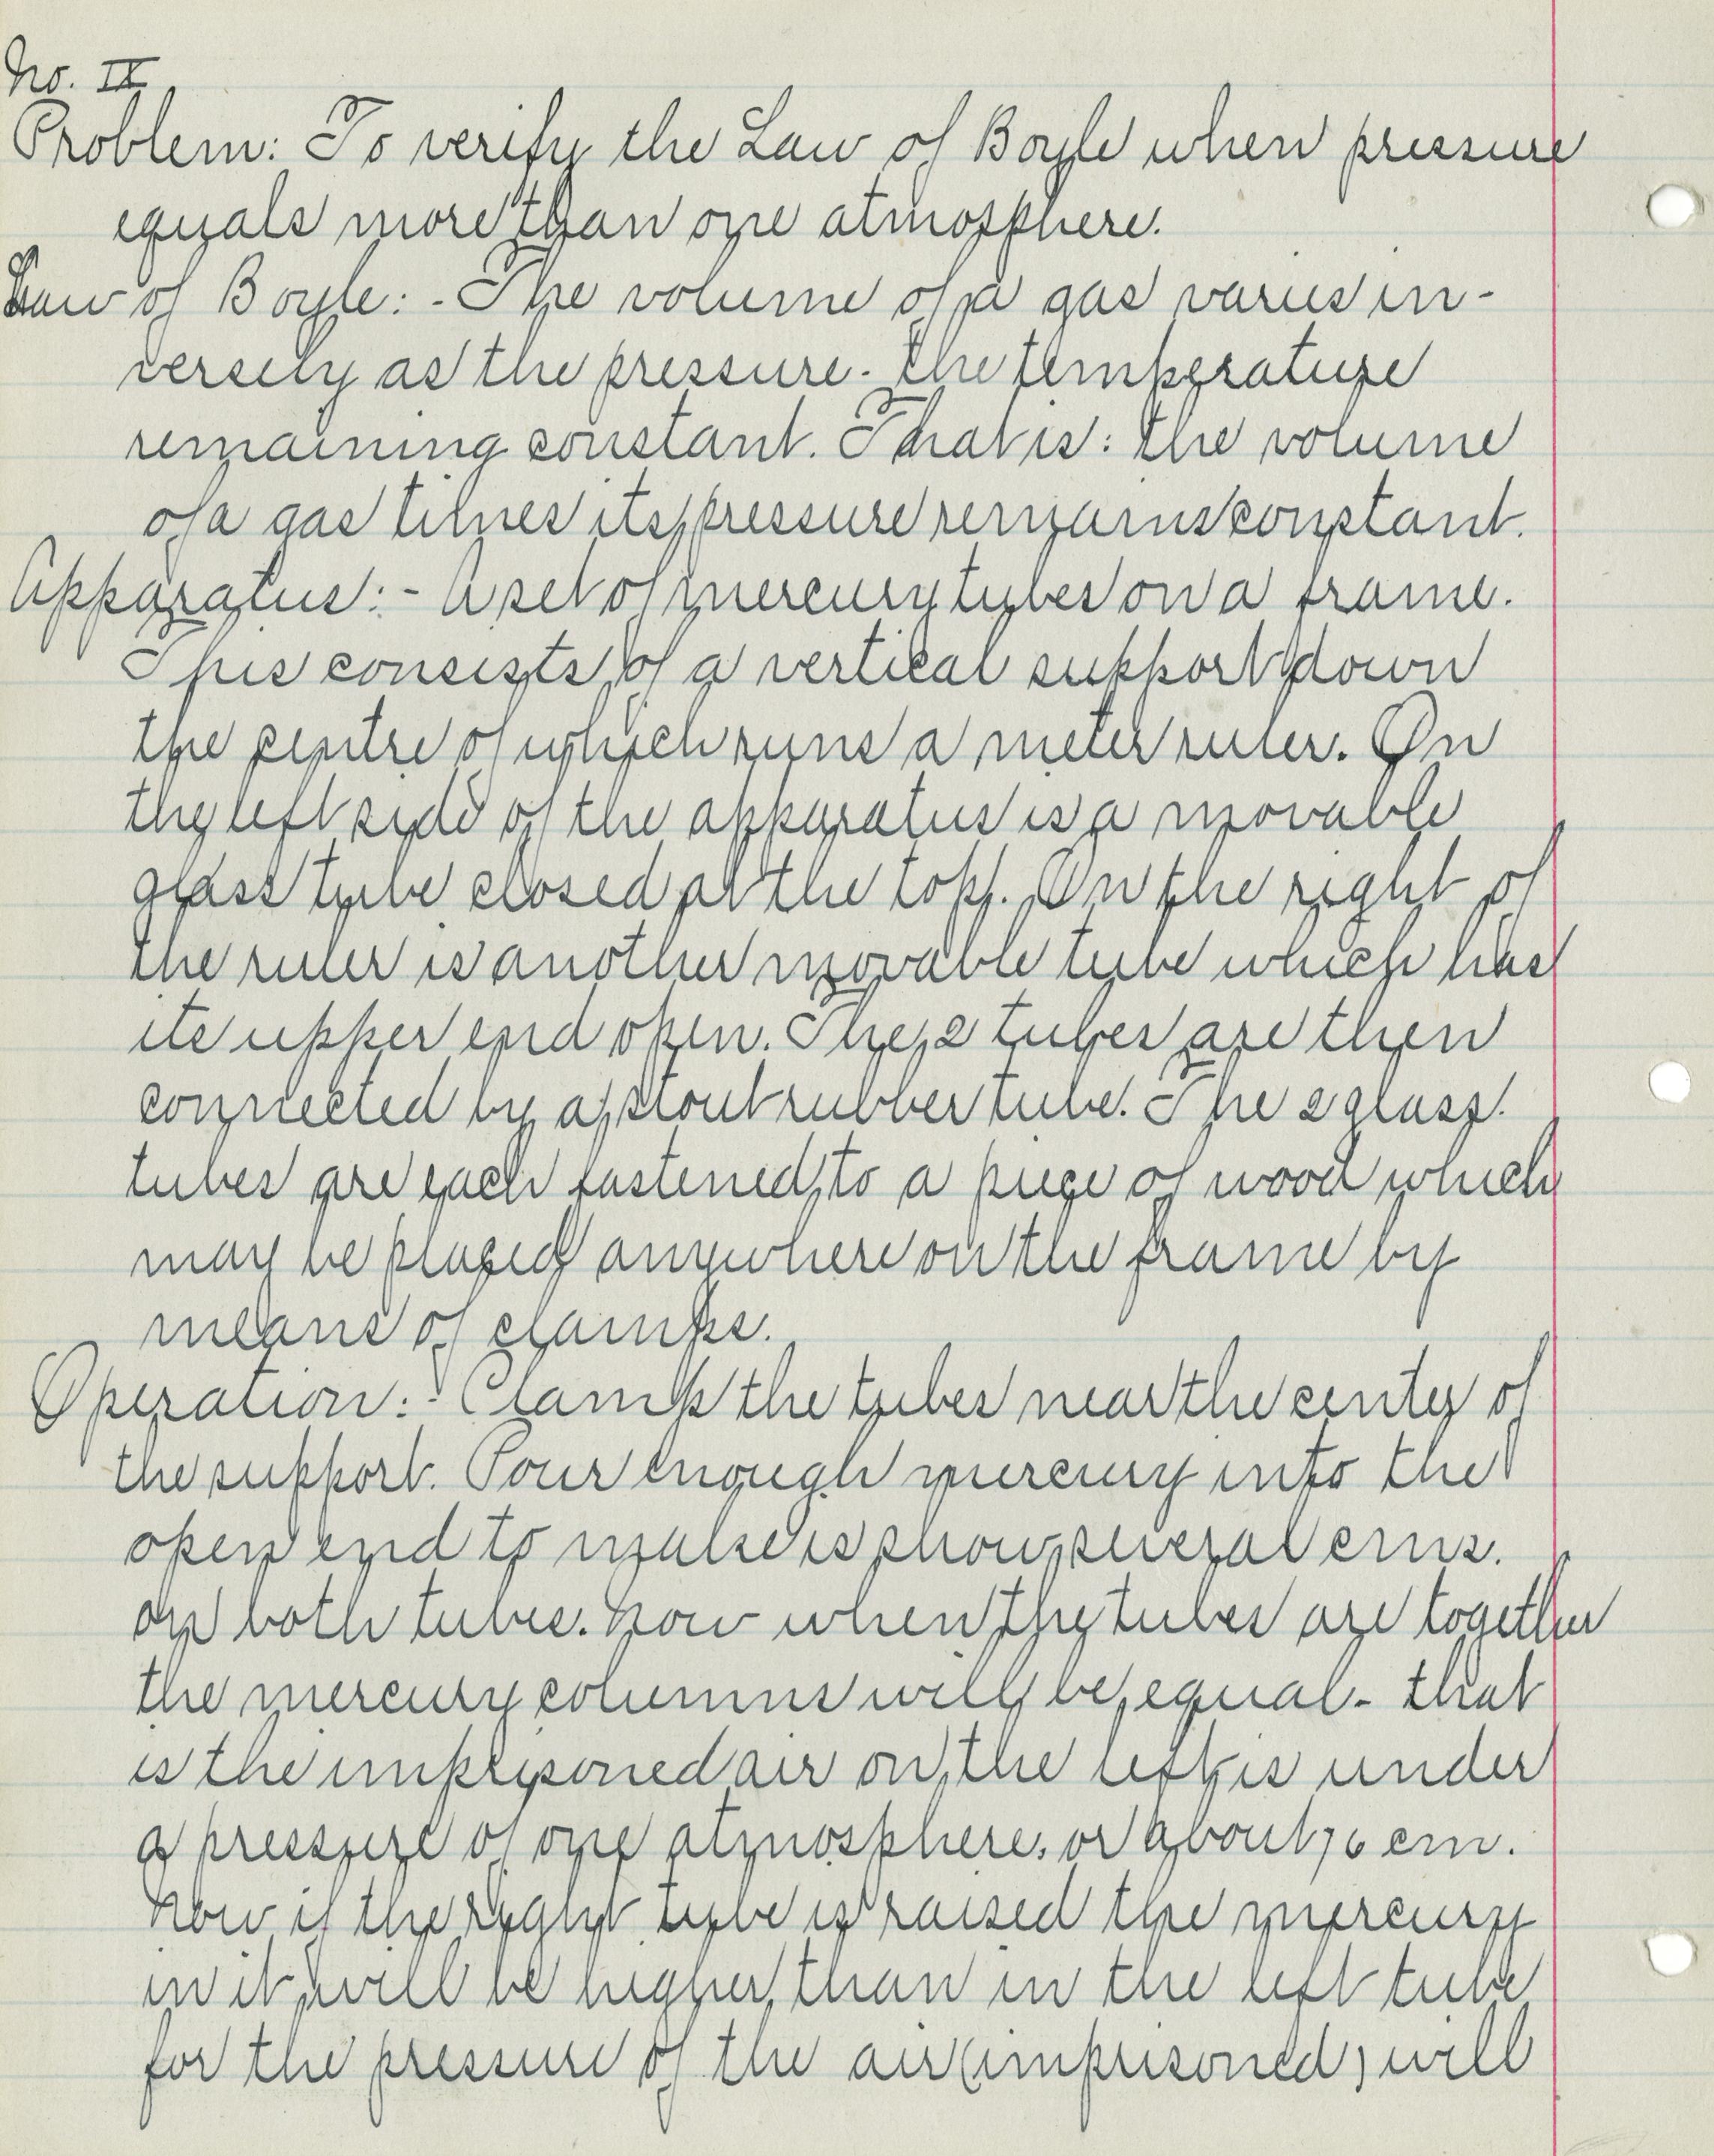 No. IX
Problem: To verify the Law of Boyle when pressure
equals more than one atmosphere.
Law of Boyle: - The volume of a gas varies in-
versely as the pressure - the temperature
remaining constant. That is: the volume
of a gas times its pressure remains constant.
Apparatus: - A set of mercury tubes on a frame.
This consists of a vertical support down
the centre of which runs a meter ruler. On
the left side of the apparatus is a movable
glass tube closed at the top. On the right of
the ruler is another movable tube which has
its upper end open. The 2 tubes are then
connected by a stout rubber tube. The 2 glass.
tubes are each fastened to a piece of wood which
may be placed anywhere on the frame by
means of clamps.
Operation: - Clamp the tubes near the center of
the support. Pour enough mercury into the
open end to make is show several cms.
on both tubes. Now when the tubes are together
the mercury columns will be equal - that
is the imprisoned air on the left is under
a pressure of one atmosphere, or about 76 cm.
Now if the right tube is raised the mercury
in it will be higher than in the left tube
for the pressure of the air (imprisoned) will